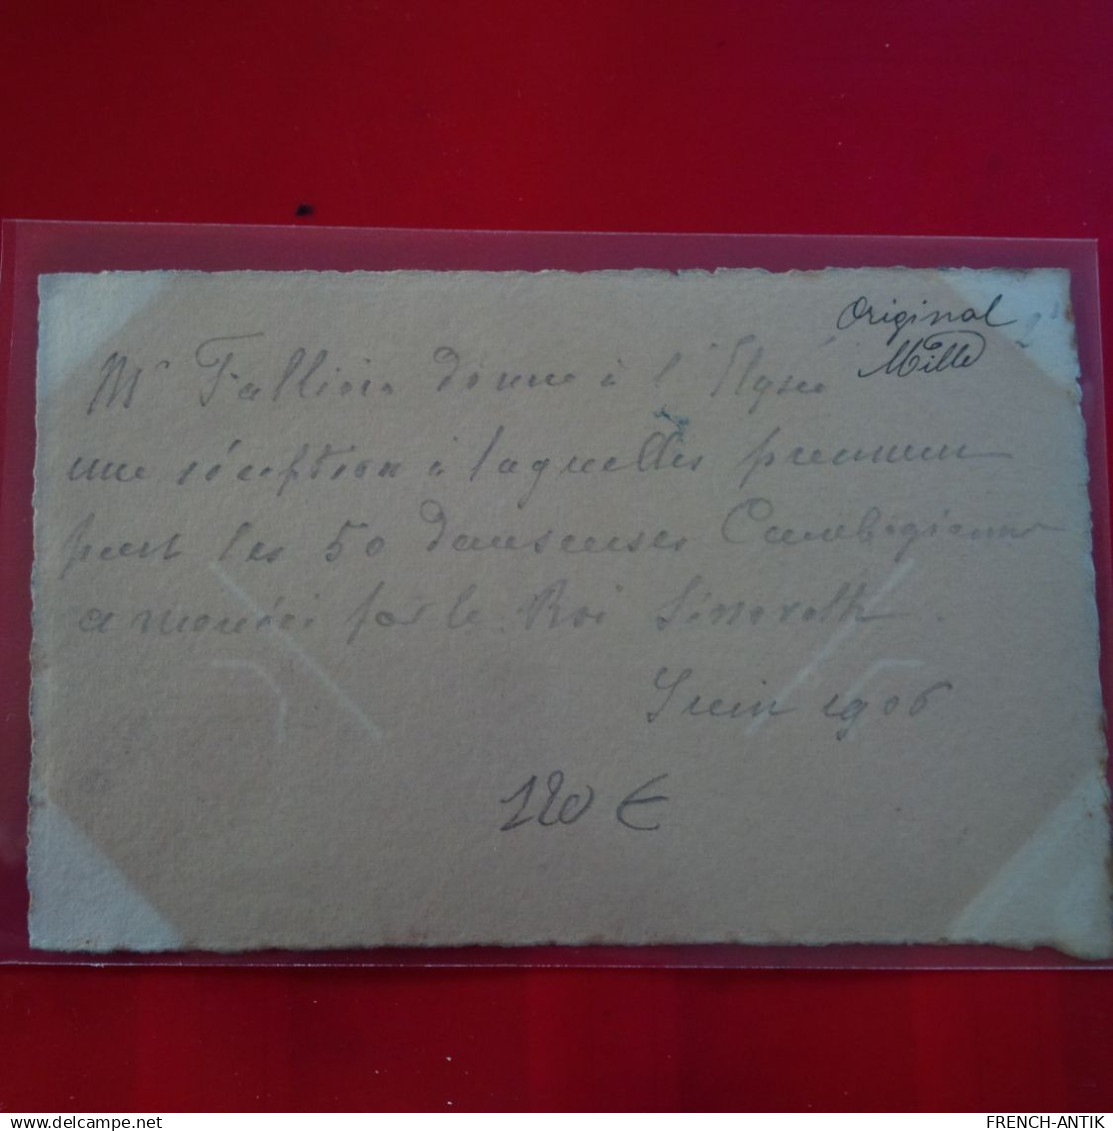 Original
Mille
Mr Fallière donne à l'Elysée
une réception à laquelles prennen
part les 50 danseuses Cambogienne
amenées par le Roi Sissovath.
Juin 1906
120 €
FRENCH-ANTIK